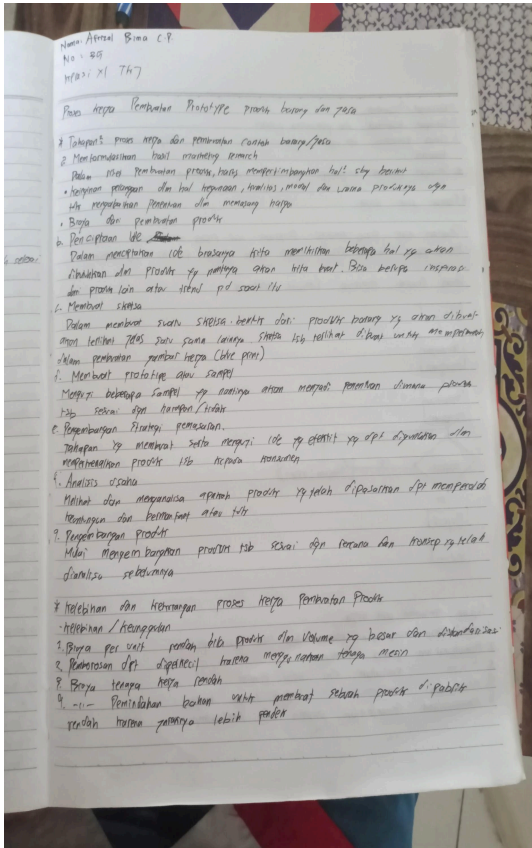 Nama: Afrizal Bima C.P.
No :
Kelas: XI
Proses kerja Pembuatan Prototype produk barang dan jasa
* Tahapan² proses kerja dan pembuatan contoh barang/jasa
a. Mentormulasikan hasil marketing research
Dalam proses pembuatan produk, harus mempertimbangkan hal² sbg berikut
• keinginan pelanggan dlm hal kegunaan, kualitas, model dan warna produknya dgn
tdk mengabaikan penentuan dlm memasang harga
• Biaya dari pembuatan produk
b. Penciptaan ide
Dalam menciptakan ide biasanya kita memikirkan beberapa hal yg akan
dibutuhkan dlm produk yg nantinya akan kita buat. Bisa berupa inspirasi
dm produk lain atau trend pd saat itu
c. Membuat sketsa
Dalam membuat suatu sketsa bentuk dari produk barang yg akan dibuat
akan terlihat jelas satu sama lainnya sketsa tsb terlihat dibuat untuk mempermudah
dalam pembuatan gambar kerja (blue print)
d. Membuat prototipe atau sampel
Menguji beberapa sampel yg nantinya akan menjadi penentuan dimana produk
tsb sesuai dgn harapan/tidak
e. Pengembangan strategi pemasaran.
Tahapan yg membuat serta menguji ide yg efektif yg dpt digunakan dlm
memperkenalkan produk tsb kepada konsumen
f. Analisis usaha
Melihat dan menganalisa apakah produk yg telah dipasarkan dpt memperoleh
keuntungan dan bermanfaat atau tdk
g. Pengembangan produk
Mulai mengembangkan produk tsb sesuai dgn rencana dan konsep yg telah
dianalisa sebelumnya
* Kelebihan dan kekurangan proses kerja Pembuatan Produk
- Kelebihan / keunggulan
1. Biaya per unit rendah bila produk dlm volume yg besar dan distandarisasi
2. Pemborosan dpt diperkecil karena menggunakan tenaga mesin
3. Biaya tenaga kerja rendah
4. -"- Pemindahan bahan untuk membuat sebuah produk di pabrik
rendah karena jaraknya lebih pendek